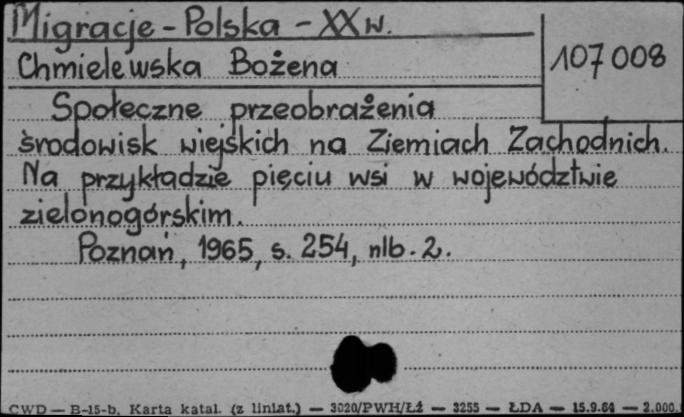 Migracje - Polska - XX w.
Chmielewska Bożena
107 008
Społeczne przeobrażenia
środowisk wiejskich na Ziemiach Zachodnich.
Na przykładzie pięciu wsi w województwie
zielonogórskim.
Poznań, 1965, s. 254, nlb. 2.
CWD — B-15-b. Karta katal. (z liniat.) — 3020/PWH/ŁŹ — 3255 — ŁDA — 15.9.64 — 2.000.